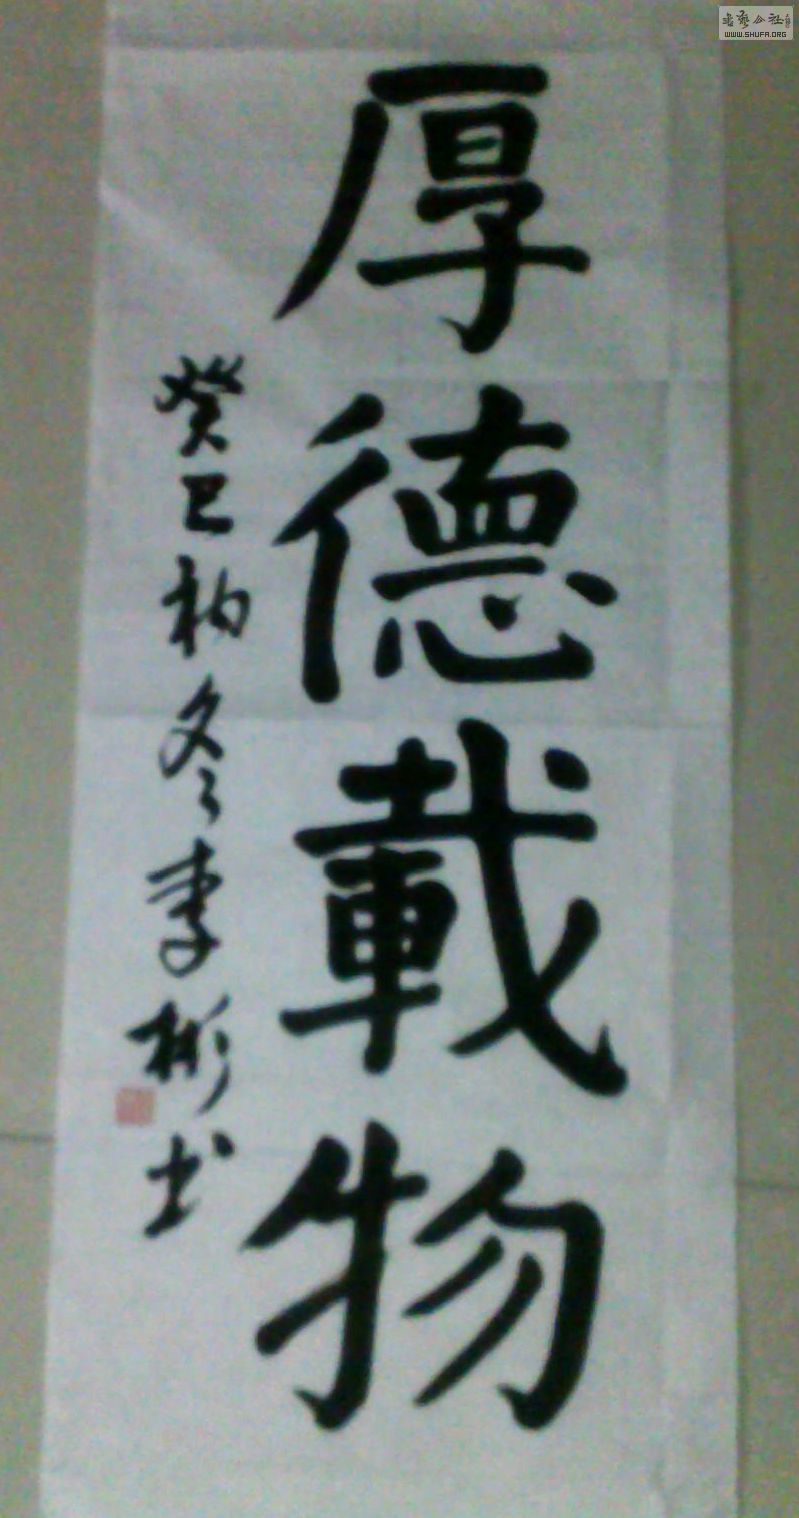 厚德載物
癸巳初冬李彬书
书艺公社
WWW.SHUFA.ORG